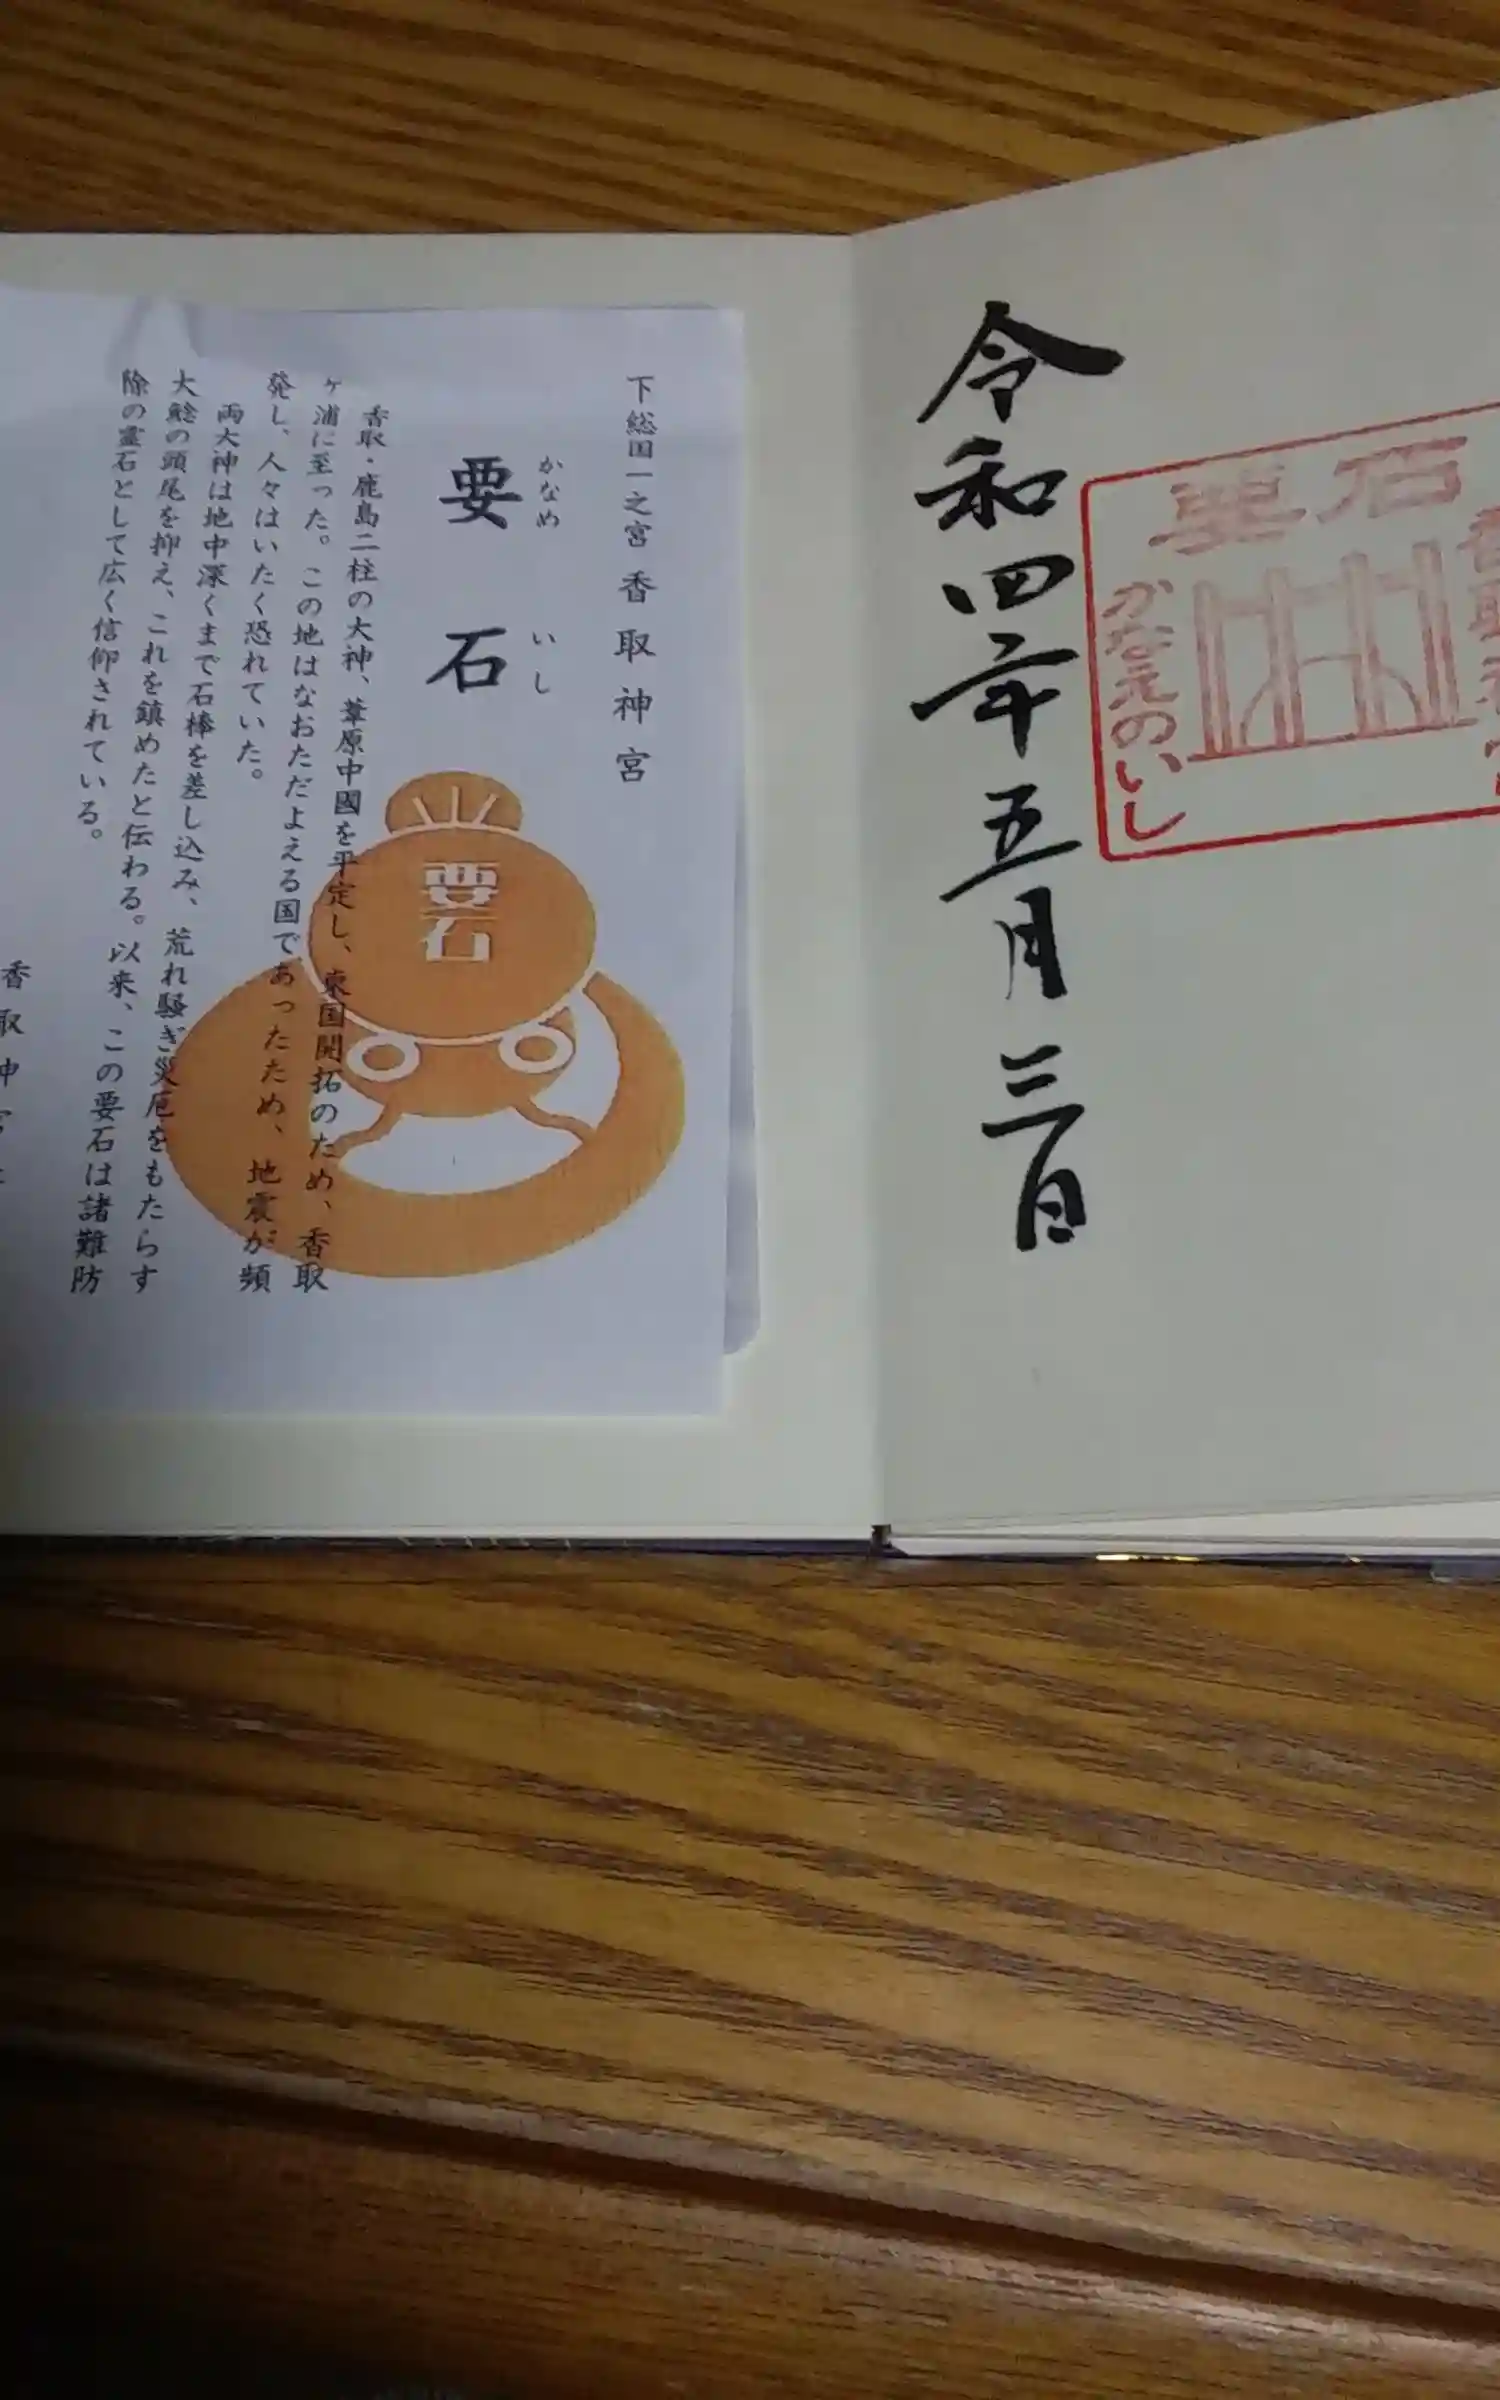 令和四年五月三日
要石
かなめのいし
下総国一之宮 香取神宮
かなめ いし
要石
香取・鹿島二柱の大神、葦原中國を平定し、東国開拓のため、香取
ヶ浦に至った。この地はなおただよえる国であったため、地震が頻
発し、人々はいたく恐れていた。
両大神は地中深くまで石棒を差し込み、荒れ騒ぎ災厄をもたらす
大鯰の頭尾を抑え、これを鎮めたと伝わる。以来、この要石は諸難防
除の霊石として広く信仰されている。
要石
香取神宮